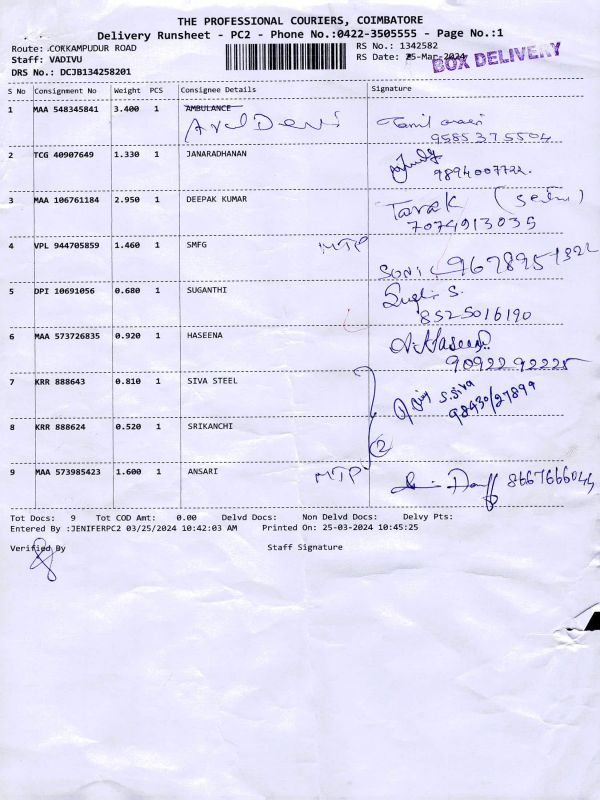 THE PROFESSIONAL COURIERS, COIMBATORE
Delivery Runsheet - PC2 - Phone No.:0422-3505555 - Page No.:1
Route: .COKKAMPUDUR ROAD
RS No.: 1342582
Staff: VADIVU
RS Date: 25-Mar-2024
BOX DELIVERY
DRS No.: DCJB134258201
S No Consignment No Weight PCS Consignee Details Signature
1 MAA 548345841 3.400 1 AMBULANCE
9585375504
2 TCG 40907649 1.330 1 JANARADHANAN
9894007722.
3 MAA 106761184 2.950 1 DEEPAK KUMAR Tarak
7074913035
4 VPL 944705859 1.460 1 SMFG MTP
SONI 9678951322
5 DPI 10691056 0.680 1 SUGANTHI
8525016190
6 MAA 573726835 0.920 1 HASEENA A. Haseena
90922 92225
7 KRR 888643 0.810 1 SIVA STEEL S.Siva
98430/27899
8 KRR 888624 0.520 1 SRIKANCHI
2
9 MAA 573985423 1.600 1 ANSARI MTP 8667666044
Tot Docs: 9 Tot COD Amt: 0.00 Delvd Docs: Non Delvd Docs: Delvy Pts:
Entered By :JENIFERPC2 03/25/2024 10:42:03 AM Printed On: 25-03-2024 10:45:25
Verified By Staff Signature